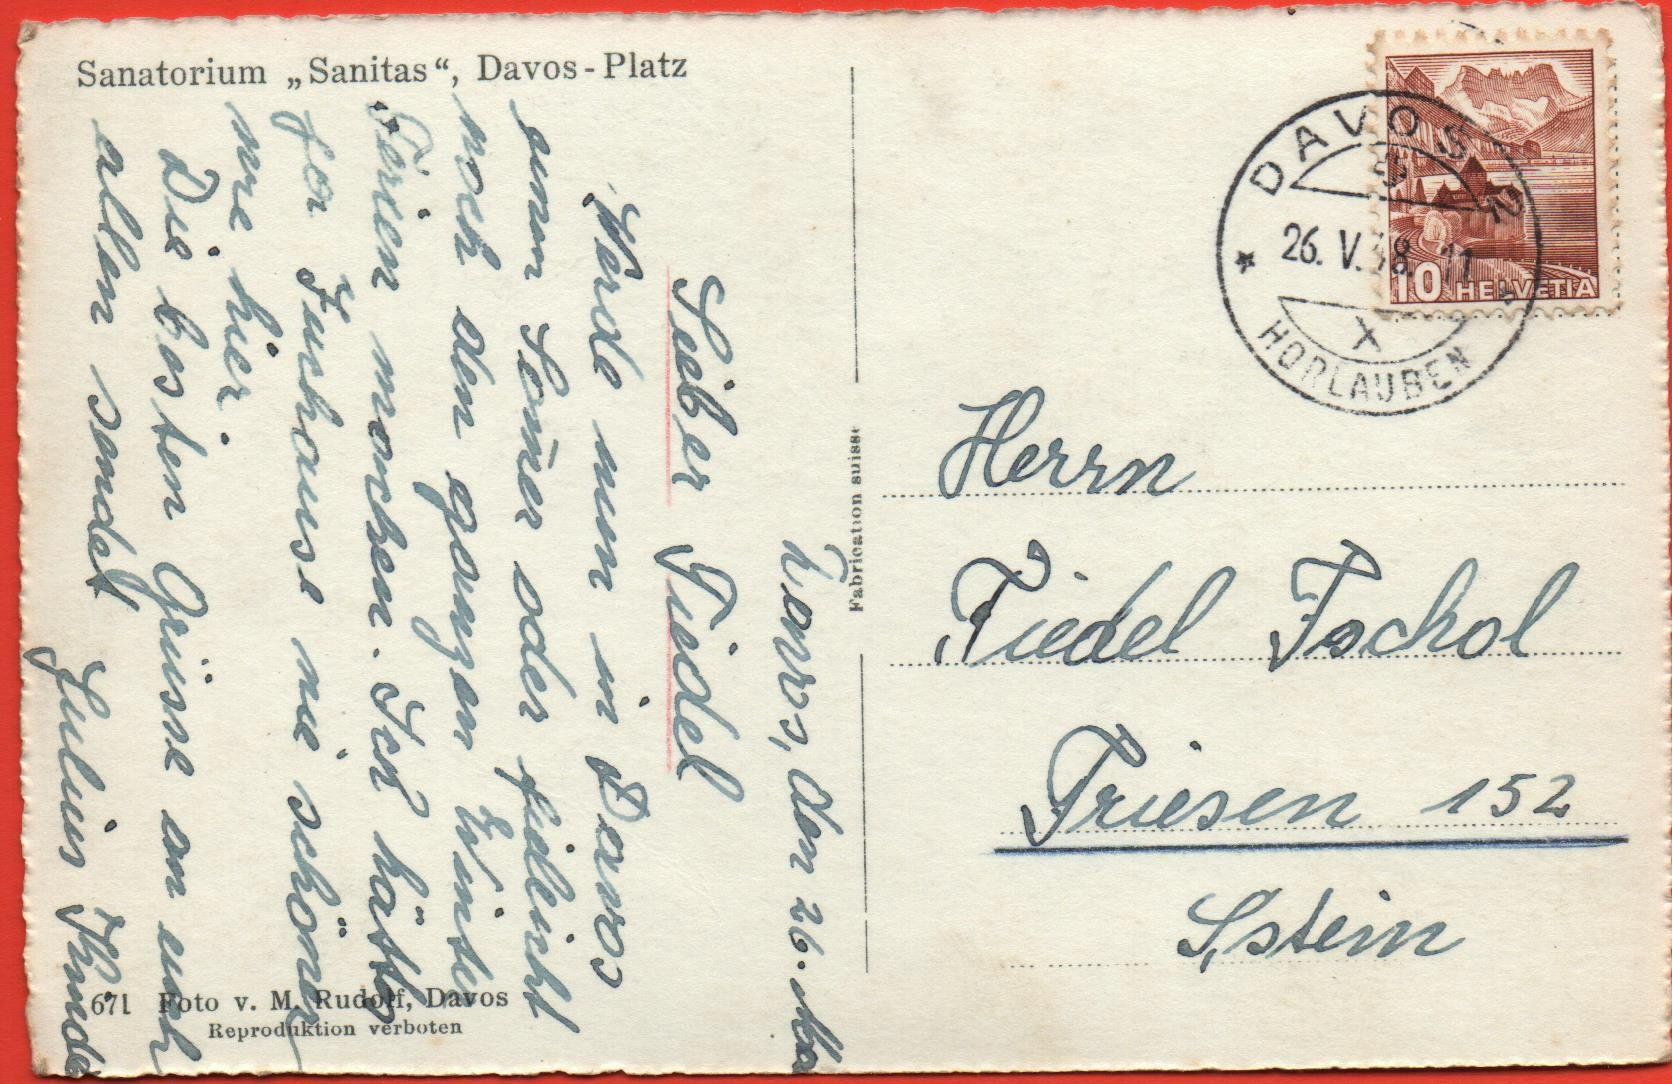 Sanatorium „Sanitas“, Davos-Platz
Davos, den 26. Mai
Lieber Fidel
Werde nun in Davos
einen Som̄er oder fileicht
noch den ganzen Winter
Ferien machen. Ich hätte
for Furkause nie schöner
wie hier.
Die besten Grüsse an euch
allen sendet
Julius Kinde
671 Foto v. M. Rudolf, Davos
Reproduktion verboten
Fabrication suisse
DAVOS 2
26. V. 38. 11
HORLAUBEN
10 HELVETIA
Herrn
Fidel Tschol
Triesen 152
Lstein